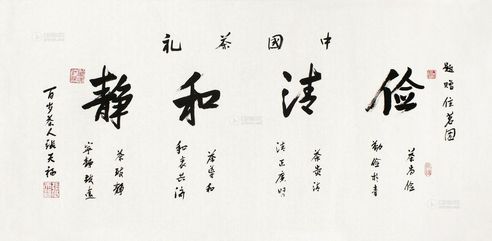 中國茶礼
题赠佳茗园
俭清和静
茶尚俭
勤俭朴素
茶贵清
清正廉明
茶导和
和衷共济
茶致静
宁静致远
百岁茶人張天福